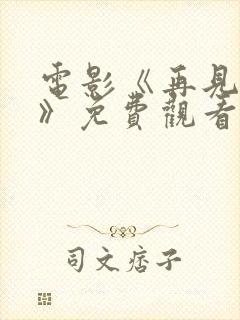 電影《再見
》免費觀看
司文痞子